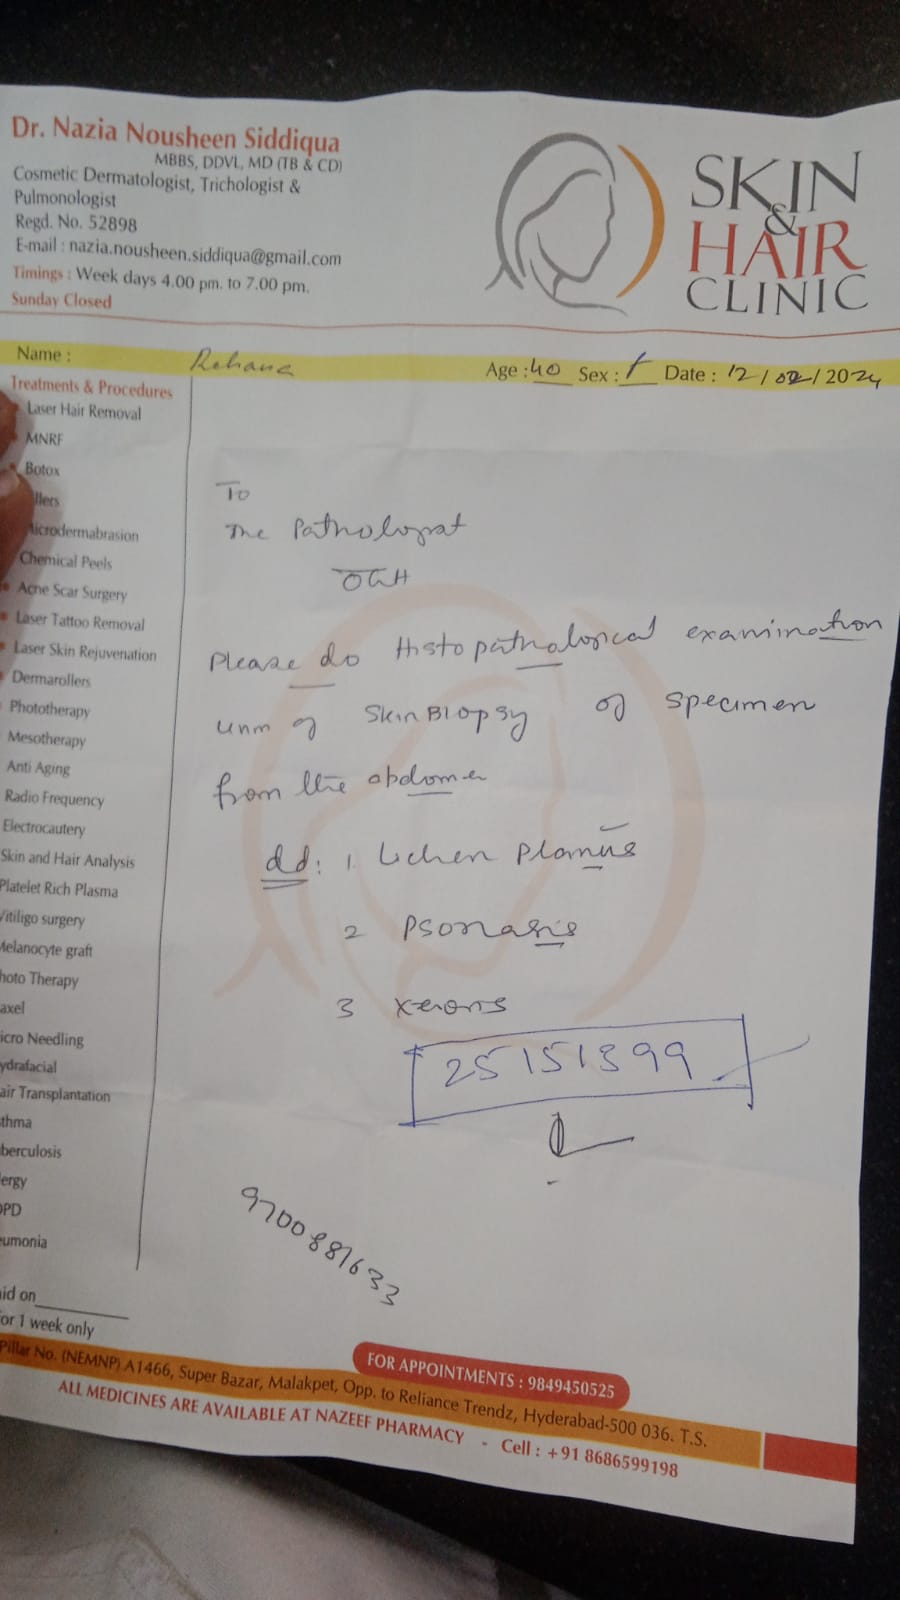 Dr. Nazia Nousheen Siddiqua
MBBS, DDVL, MD (TB & CD)
Cosmetic Dermatologist, Trichologist &
Pulmonologist
Regd. No. 52898
E-mail : nazia.nousheen.siddiqua@gmail.com
Timings : Week days 4.00 pm. to 7.00 pm.
Sunday Closed
SKIN
&
HAIR
CLINIC
Name : Rehana Age : 40 Sex : f Date : 12/02/2024
Treatments & Procedures
Laser Hair Removal
MNRF
Botox
llers
icrodermabrasion
Chemical Peels
Acne Scar Surgery
Laser Tattoo Removal
Laser Skin Rejuvenation
Dermarollers
Phototherapy
Mesotherapy
Anti Aging
Radio Frequency
Electrocautery
Skin and Hair Analysis
Platelet Rich Plasma
Vitiligo surgery
Melanocyte graft
hoto Therapy
axel
icro Needling
ydrafacial
air Transplantation
thma
berculosis
ergy
OPD
eumonia
id on
or 1 week only
To
The Pathologist
OGH
Please do Histopathological examination
of Skin Biopsy of specimen
from the abdomen
dd: 1. Lichen Planus
2 Psoriasis
3 Xerosis
25151399
9700881633
FOR APPOINTMENTS : 9849450525
Pillar No. (NEMNP) A1466, Super Bazar, Malakpet, Opp. to Reliance Trendz, Hyderabad-500 036. T.S.
ALL MEDICINES ARE AVAILABLE AT NAZEEF PHARMACY - Cell : +91 8686599198